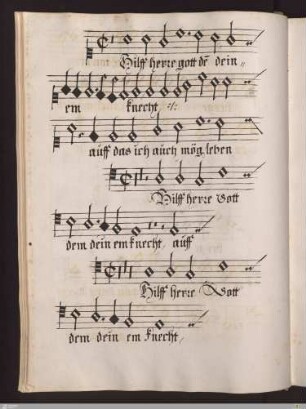 Hilff herre gott dē dein
em knecht :/:
auff das ich auch mög leben
Hilff herre Gott
dem dein em knecht, auff
Hilff herre Gott
dem dein em knecht,